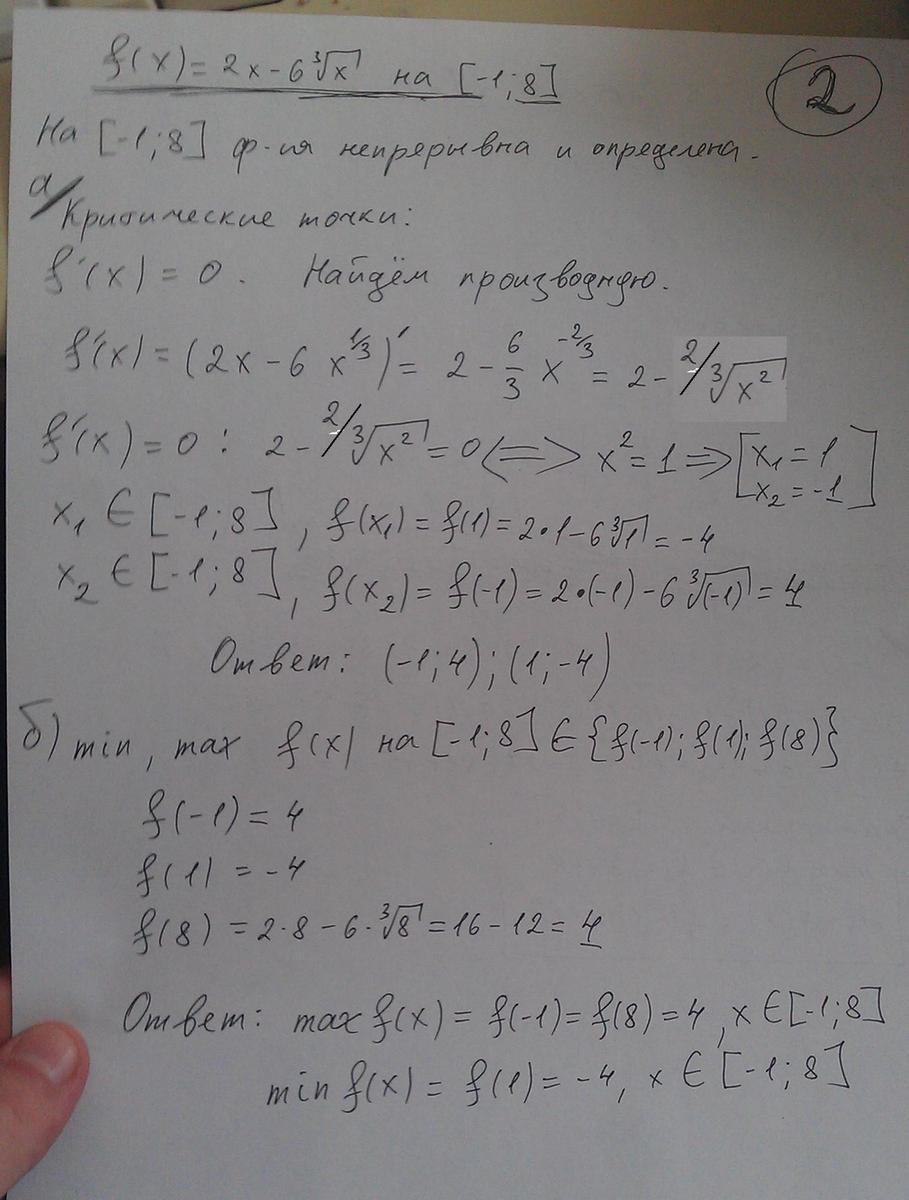 f(x) = 2x - 6∛x на [-1; 8]
2
На [-1; 8] ф-ия непрерывна и определена.
а) Критические точки:
f'(x) = 0. Найдём производную.
f'(x) = (2x - 6 x^{1/3})' = 2 - 6/3 x^{-2/3} = 2 - 2/∛x²
f'(x) = 0 : 2 - 2/∛x² = 0 <=> x² = 1 => [x₁ = 1
x₂ = -1]
x₁ ∈ [-1; 8], f(x₁) = f(1) = 2·1 - 6∛1 = -4
x₂ ∈ [-1; 8], f(x₂) = f(-1) = 2·(-1) - 6∛(-1) = 4
Ответ: (-1; 4); (1; -4)
б) min, max f(x) на [-1; 8] ∈ {f(-1); f(1); f(8)}
f(-1) = 4
f(1) = -4
f(8) = 2·8 - 6·∛8 = 16 - 12 = 4
Ответ: max f(x) = f(-1) = f(8) = 4, x ∈ [-1; 8]
min f(x) = f(1) = -4, x ∈ [-1; 8]